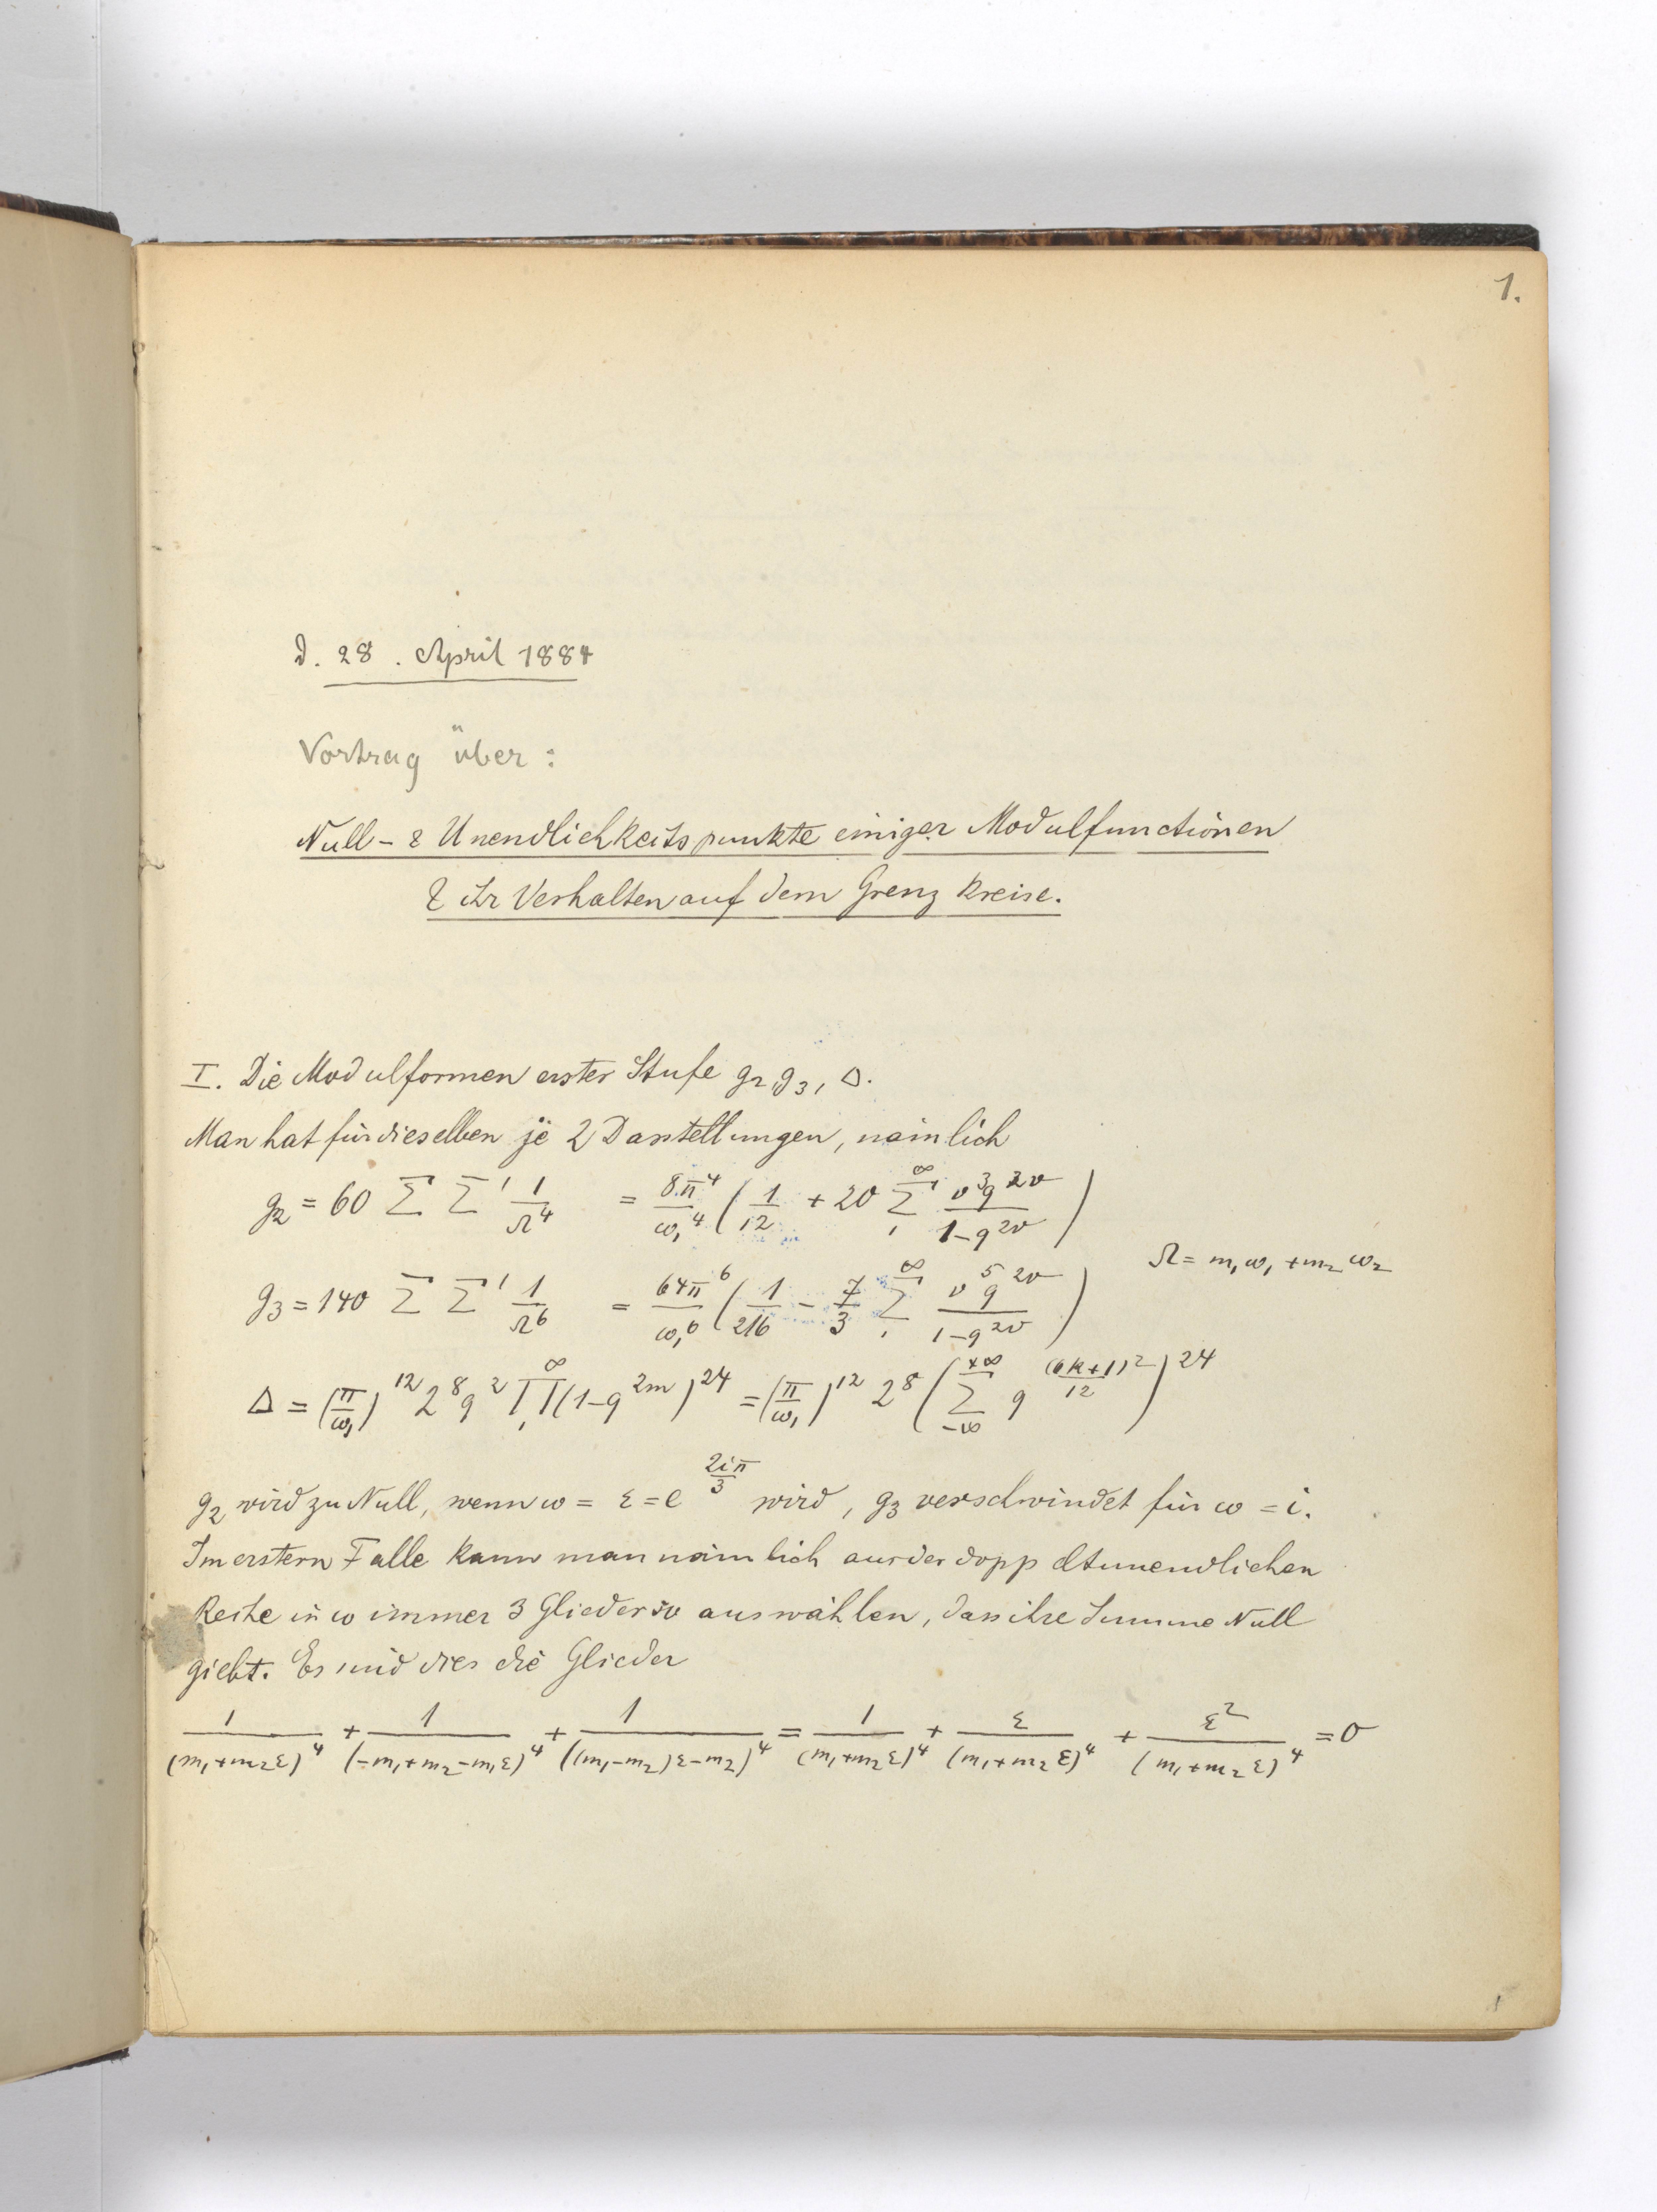 1.
d. 28. April 1884
Vortrag über:
Null- & Unendlichkeitspunkte einiger Modulfunctionen
& ihr Verhalten auf dem Grenzkreise.
I. Die Modulformen erster Stufe g₂, g₃, Δ.
Man hat für dieselben je 2 Darstellungen, nämlich
g₂ = 60 Σ Σ' 1/Ω⁴ = 8π⁴/ω₁⁴ (1/12 + 20 Σ₁^∞ ν³q^{2ν}/(1-q^{2ν}))
Ω = m₁ω₁ + m₂ω₂
g₃ = 140 Σ Σ' 1/Ω⁶ = 64π⁶/ω₁⁶ (1/216 - 7/3 Σ₁^∞ ν⁵q^{2ν}/(1-q^{2ν}))
Δ = (π/ω₁)¹² 2⁸ q² Π₁^∞ (1-q^{2m})²⁴ = (π/ω₁)¹² 2⁸ (Σ_{-∞}^{+∞} q^{(6k+1)²/12})²⁴
g₂ wird zu Null, wenn ω = ε = e^{2iπ/3} wird, g₃ verschwindet für ω = i.
Im erstern Falle kann man nämlich aus der doppeltunendlichen
Reihe in ω immer 3 Glieder so auswählen, dass ihre Summe Null
giebt. Es sind dies die Glieder
1/(m₁+m₂ε)⁴ + 1/(-m₁+m₂-m₁ε)⁴ + 1/((m₁-m₂)ε-m₂)⁴ = 1/(m₁+m₂ε)⁴ + ε/(m₁+m₂ε)⁴ + ε²/(m₁+m₂ε)⁴ = 0